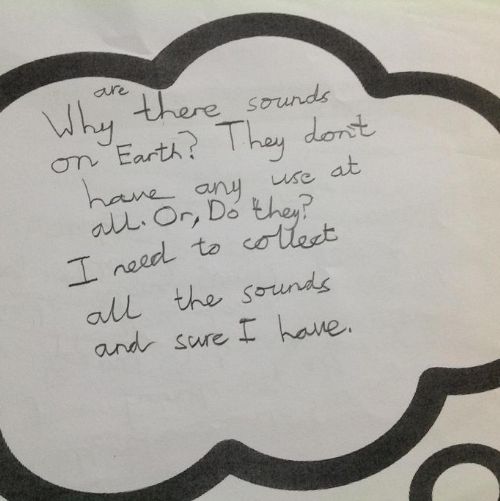 Why are there sounds
on Earth? They don't
have any use at
all. Or, Do they?
I need to collect
all the sounds
and sure I have.